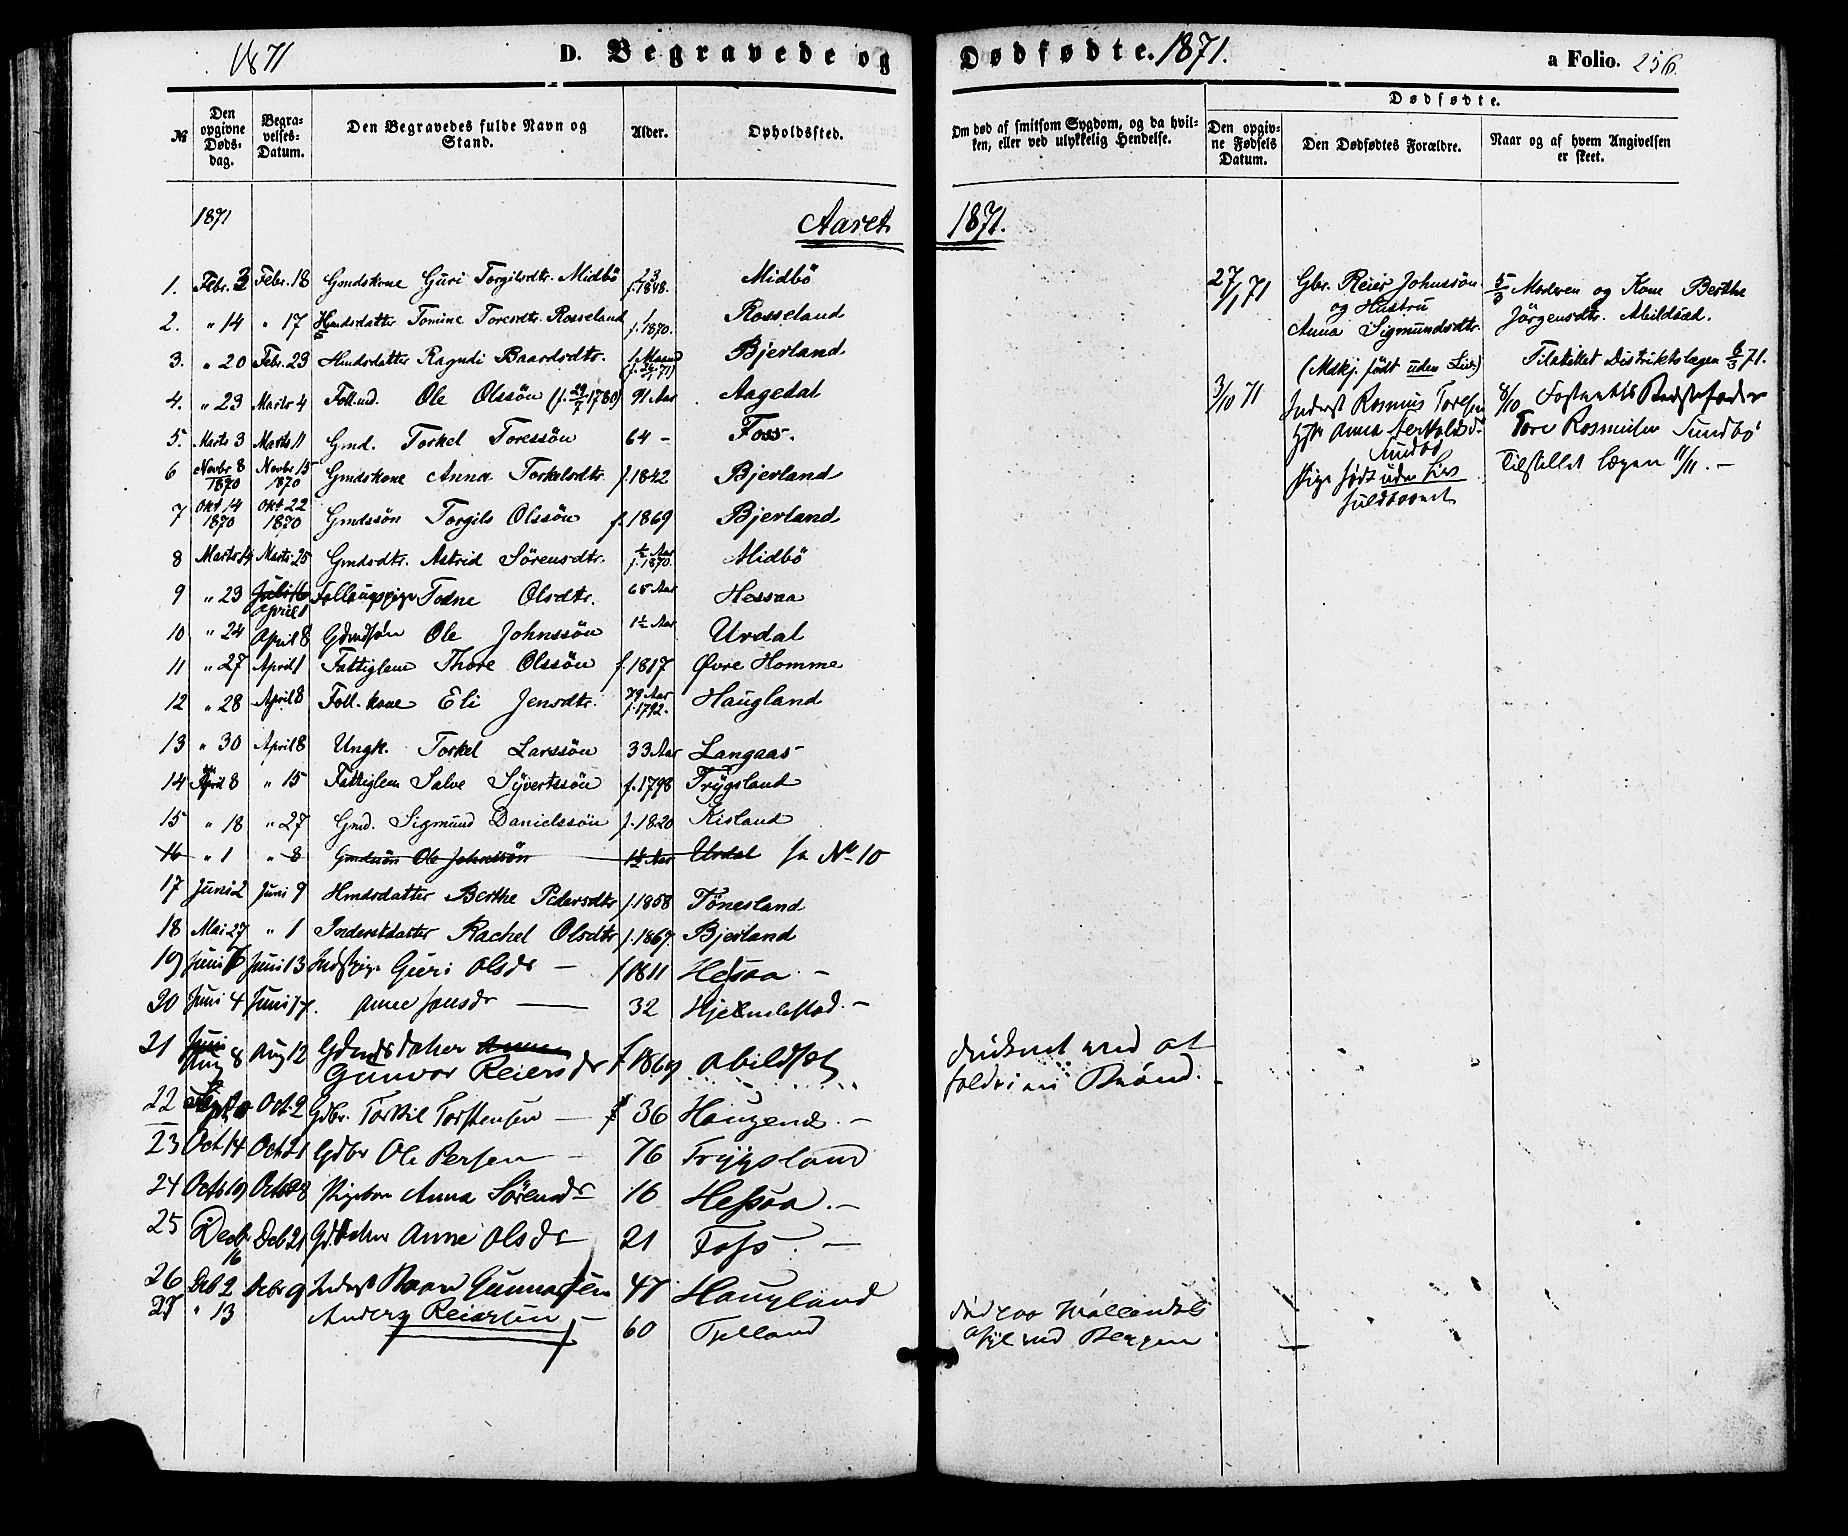 1871 D. Begravede og Dødfødte. 1871. a Folio. 256.
№ Den opgivne Døds-dag. Begra-velses-Datum. Den Begravedes fulde Navn og Stand. Alder. Opholdssted. Om død af smitsom Sygdom, og da hvil-ken, eller ved ulykkelig Hendelse. Dødfødte. Den opgiv-ne Fødsels Datum. Den Dødfødtes Forældre. Naar og af hvem Angivelsen er skeet.
1871 Aaret 1871.
1. Febr. 3 Febr. 18 Gmdskone Guri Torgilsdtr. Midbö 23 f. 1848. Midbö
2. " 14 " 17 Hmdsdatter Tomine Toresdtr. Rosseland 1 f. 1870. Rosseland
3. " 20 Febr. 23 Hmdsdatter Ragndi Baardsdtr. 1 Maaned Bjerland
4. " 23 Marts 4 Follmd. Ole Olssön (f. 29/7 1780) 91 Aar Aagedal
5. Marts 3 Marts 11 Gmd. Torkel Toressön 64 - Foss.
6 Novbr 8 1870 Novbr 15 1870 Gmdskone Anna Torkelsdtr. f. 1842 Bjerland
7 Okt 14 1870 Okt 22 1870 Gmdssön Torgils Olssön f. 1869 Bjerland
8 Marts 14 Marts 25 Gmdsdtr. Astrid Sörensdtr. 1/2 Aar f. 1870. Midbö
9 " 23 Juli 16 April 1 Follaugspige Todne Olsdtr. 65 Aar Hessaa
10 " 24 April 8 Gdmdssøn Ole Johnssön 1 1/2 Aar Urdal
11 " 27 April 1 Fattiglem Thore Olssön f. 1817 Øvre Homme
12 " 28 April 8 Foll. kone Eli Jensdtr. 79 Aar f. 1792. Haugland
13 " 30 April 8 Ungk. Torkel Larssön 33 Aar Langaas
14 April 8 " 15 Fattiglem Salve Syvertssön f. 1798 Trygsland
15 " 18 " 27 Gmd. Sigmund Danielssön f. 1820 Kisland
16 " 1 " 8 Gmdssön Ole Johnssön 1 1/2 Aar Urdal fr No 10
17 Juni 2 Juni 9 Hmdsdatter Berthe Pedersdtr f. 1858 Tönesland
18 Mai 27 " 1 Inderstdatter Rachel Olsdtr f. 1867. Bjerland
19 Juni 6 Juni 13 Indstpige Guri Olsdr - f 1811 Hessaa -
20 Juni 4 Juni 17. Anne Jonsdr 32 Hjelmlestad. -
21 Juni Aug 8 Aug 12 Gdmdsdatter Anne
Gunvor Reiersdr f 1869 Abildsøl
22 Oct. 2 Gdbr. Torkil Torstensen - 36 Haugend. -
23 Oct 14 Oct 21 Gdbr Ole Persen - 76 Trygsland
24 Octb 19 Octb 28 Pigebarn Anna Sörensdr 16 Hessaa. -
25 Decb. 16 Deb 21 Gdbdatter Anne Olsdr 21 Foss. -
26 Deb 2 Debr 9 Inderst Baard Gunnarsen 47 Haugland
27 " 13 Anders Reiersen - 60 Tjelland
druknet ved at
falde i en Brönd.
död paa Möllendals
Asyl ved Bergen
27/1 71 Gbr. Reier Johnssön
og Hustru
Anna Sigmundsdtr.
(Mdkj. født uden Liv)
5/3 Moderen og Kone Berthe
Jörgensdtr. Abildsöl.
Tilstillet Distriktslægen 6/3 71.
3/10 71 Inderst Rasmus Toresen
Hstr Anna
Sundbö
Pige født uden Liv
fuldbaaret
8/10 Fosterets Bedstefader
Tore Rasmusen Sundbö
Tilstillet Lægen 11/11. -